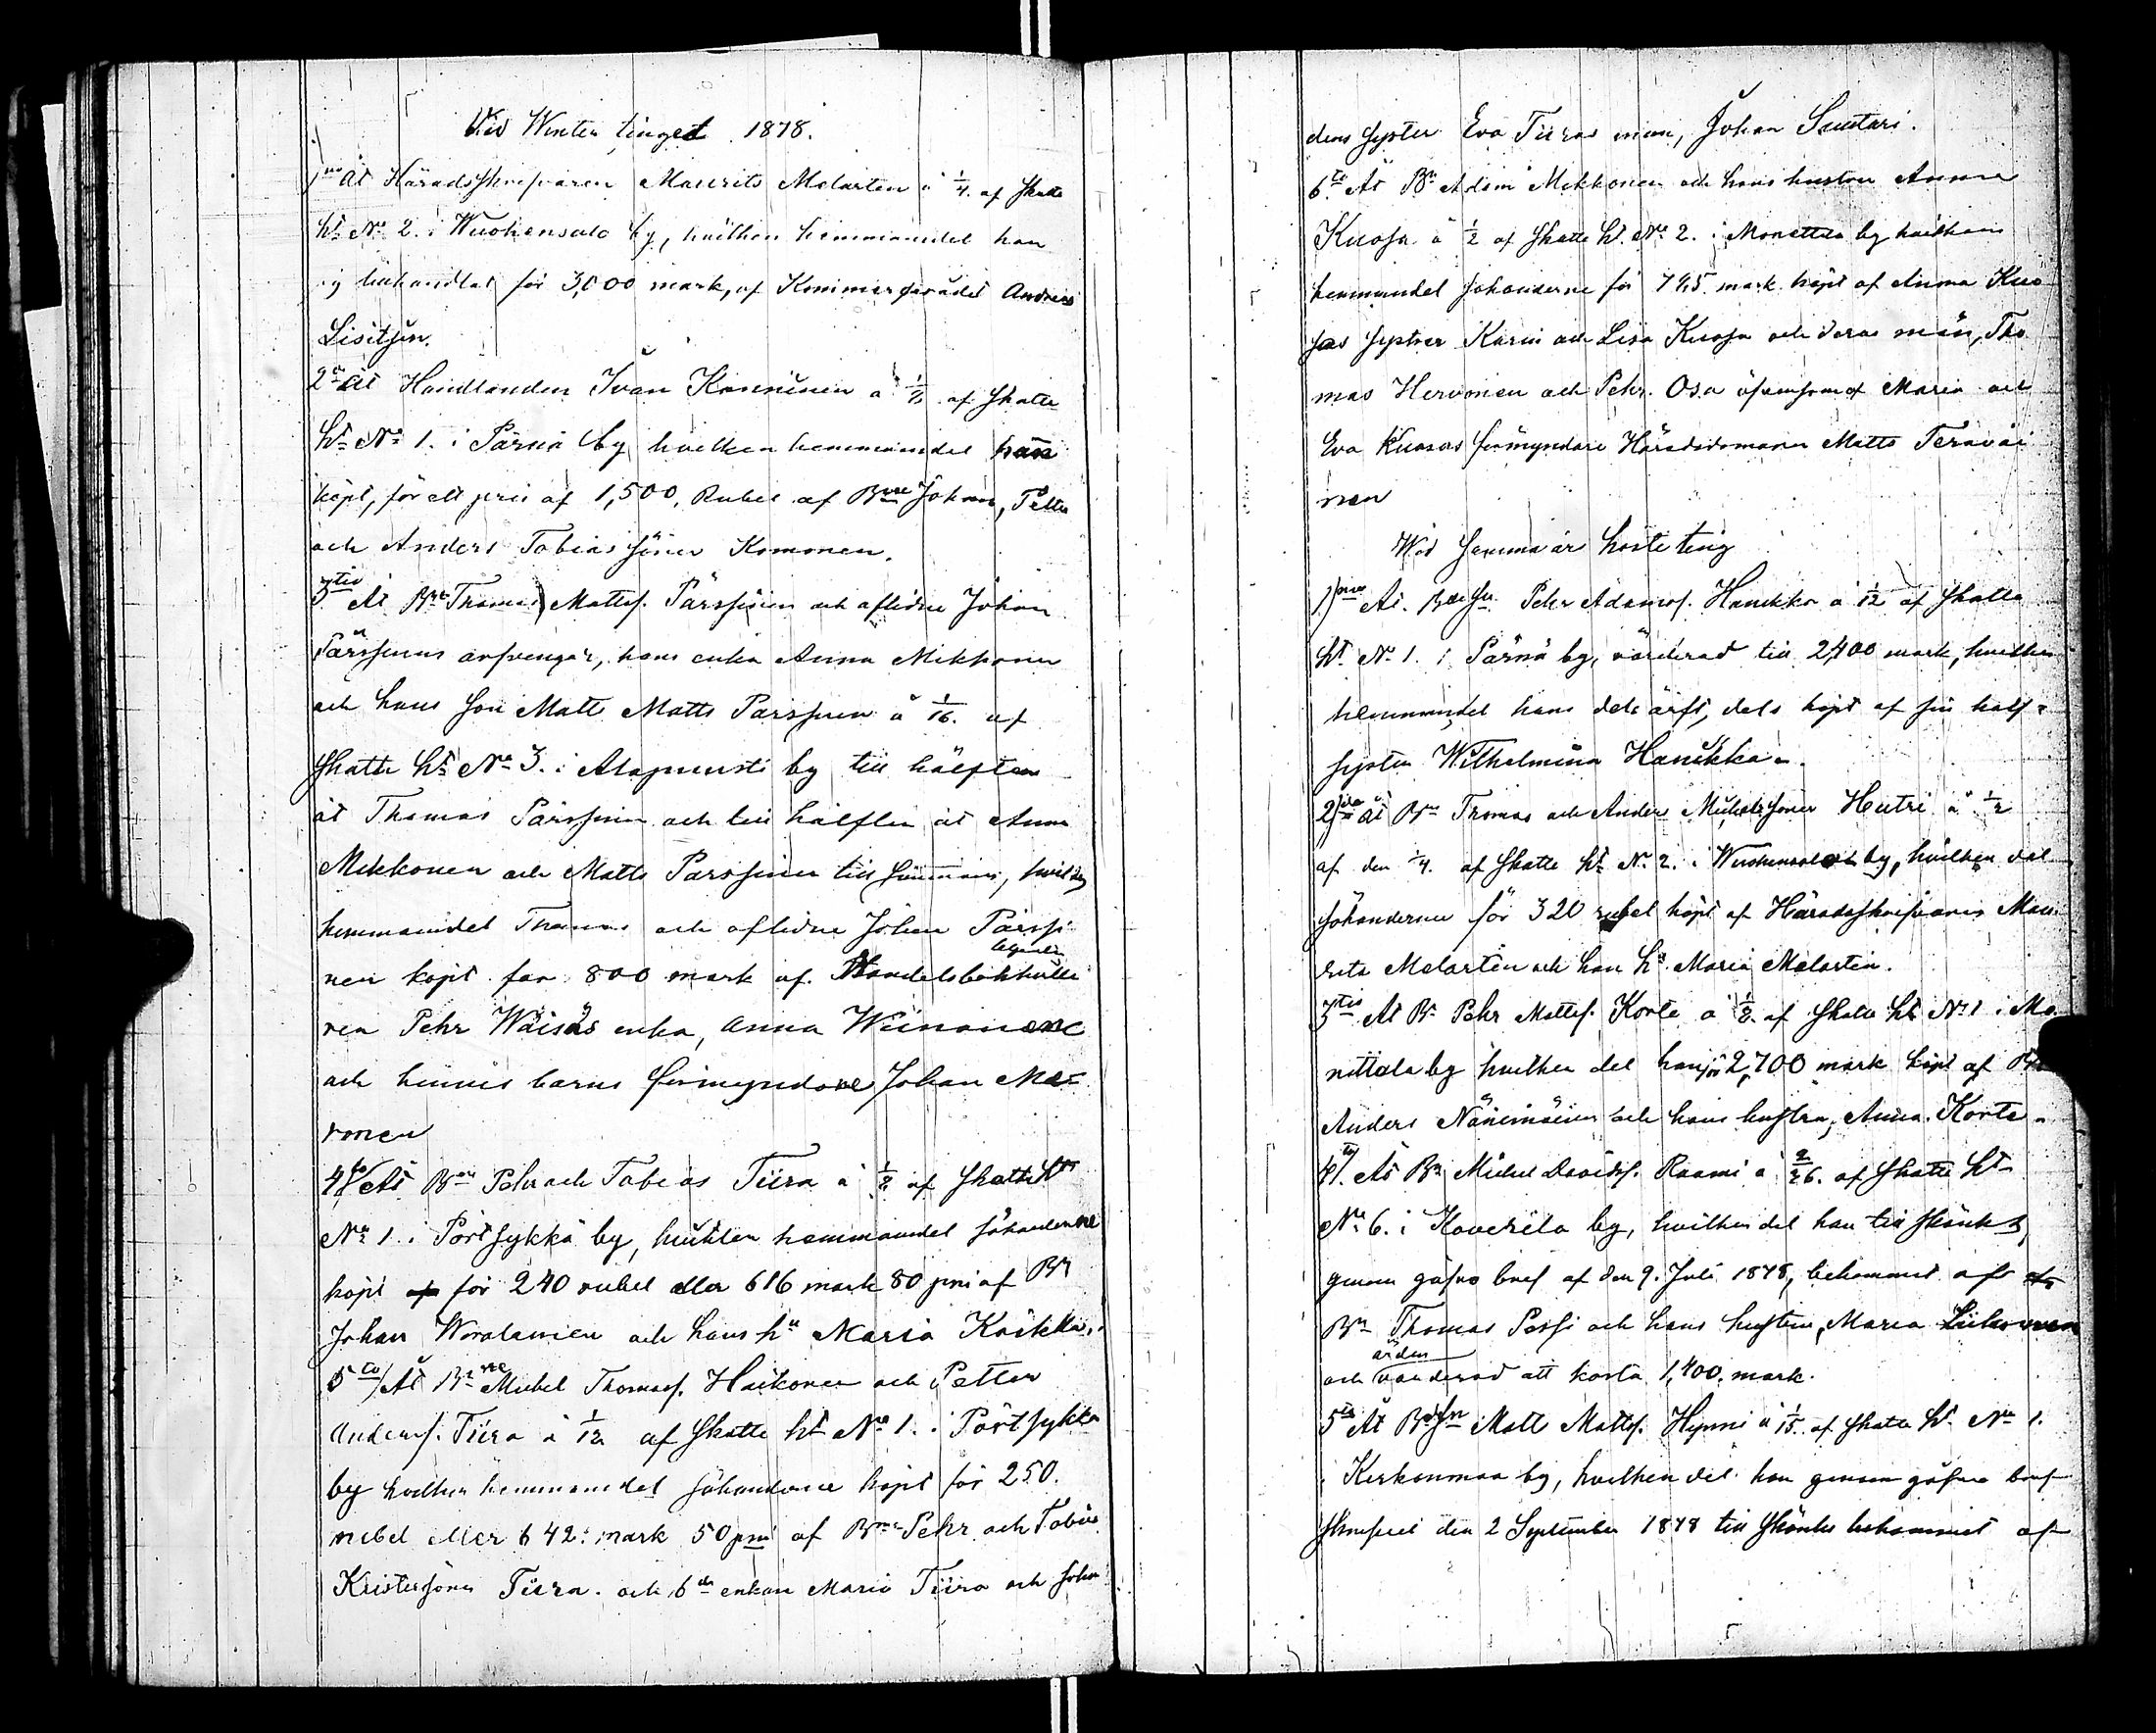 Vid Winter tinget 1878.
1mo Åt Häradsskrifvaren Maurits Melartin å 1/4. af skatte
ht No 2. i Wuohensalo by, hvilken hemmandel han
sig tillhandlat för 3,000 mark, af Kommerserådet Andreas
Lisitsin.
2do Åt Handlanden Ivan Konninen å 1/8 af skatte
ht No 1. i Pärnä by hvilken hemmandel han
köpt, för ett pris af 1,500, Rubel af Bne Johan, Petter
och Anders Tobias söner Komonen.
3tio Åt Bne Thomas Mattss. Pärssinen och aflidne Johan
Pärssinens arfvingar, hans enka Anna Mikkonen
och hans son Matts Matts Pärssinen å 1/16. af
skatte ht No 3. i Alapuusti by till hälften
åt Thomas Pärssinen och till hälften åt Anna
Mikkonen och Matts Pärssinen till samman, hvilken
hemmandel Thomas och aflidne Johan Pärssi-
nen köpt för 800 mark af Handelsbokhålla
ren Pehr Wäisäs enka, Anna Weinonen
och hennes barns förmyndare Johan Mä=
rönen
4to/ Åt Bne Pehr och Tobias Tiira å 1/8 af skatte ht
No 1. i Pörtsykkä by, hvilken hemmandel sökanderne
köpt af för 240 rubel eller 616 mark 80 pni af Bn
Johan Woralainen och hans hu Maria Koikka.
5to/ Åt Bne Mickel Thomass. Haikonen och Petter
Anderss. Tiira å 1/12 af skatte ht No 1. i Pörtsykkä
by hvilken hemmandel sökanderne köpt för 250.
rubel eller 642: mark 50 pni af Bne Pehr och Tobias
Kristerssöner Tiira. och 6to enkan Maria Tiira och Johan
dens syster Eva Tiiras man, Johan Suutari.
6to Åt Bn Adam Mikkonen och hans hustru Anna
Kuosa å 1/2 af skatte ht. No 2. i Monettula by hvilken
hemmandel sökanderne för 795 mark köpt af Anna Kuo
sas systrar Karin och Lisa Kuosa och deras män, Tho
mas Hervonen och Pehr Osa äfvensom af Maria och
Eva Kuosas förmyndare Häradsdomaren Matts Teravai
nen
Wid samma års höste ting
1)mo Åt. Bdesn Pehr Adamss. Hanikka å 1/12 af skatte
ht. No 1. i Pärnä by, värderad till 2,400 mark, hvilken
hemmandel han dels ärft, dels köpt af sin half=
syster Wilhelmina Hanikka.
2)do åt Bne Thomas och Anders Mickelssöner Hutri å 1/2
af den 1/4. af skatte ht No. 2. i Wuohensalo by, hvilken del
sökanderne för 320 rubel köpt af Häradsskrifvaren Mau-
rits Melartin och hans hu Maria Melartin.
3tio Åt Bn Pehr Mattss. Korte å 1/8 af skatte ht No 1 i Mo
nittala by hvilken del han för 2,700 mark köpt af Bn
Anders Näriinäinen och hans hustru, Anna Korte.
4to/. Åt Bn Mickel Davidss. Raami å 2/26. af skatte ht
No 6. i Koverila by, hvilken del han till skänks
genom gåfvo bref af den 9. Juli 1878, bekommit af
Bn Thomas Pessi och hans hustru, Maria Liikonen
och värderad att kosta 1,400. mark.
5to Åt Bdesn Matt Mattss. Hynni å 1/15. af skatte ht. No 1.
i Kirkonmaa by, hvilken del han genom gåfvo bref
skrifvet den 2 September 1878 till skänks bekommit af